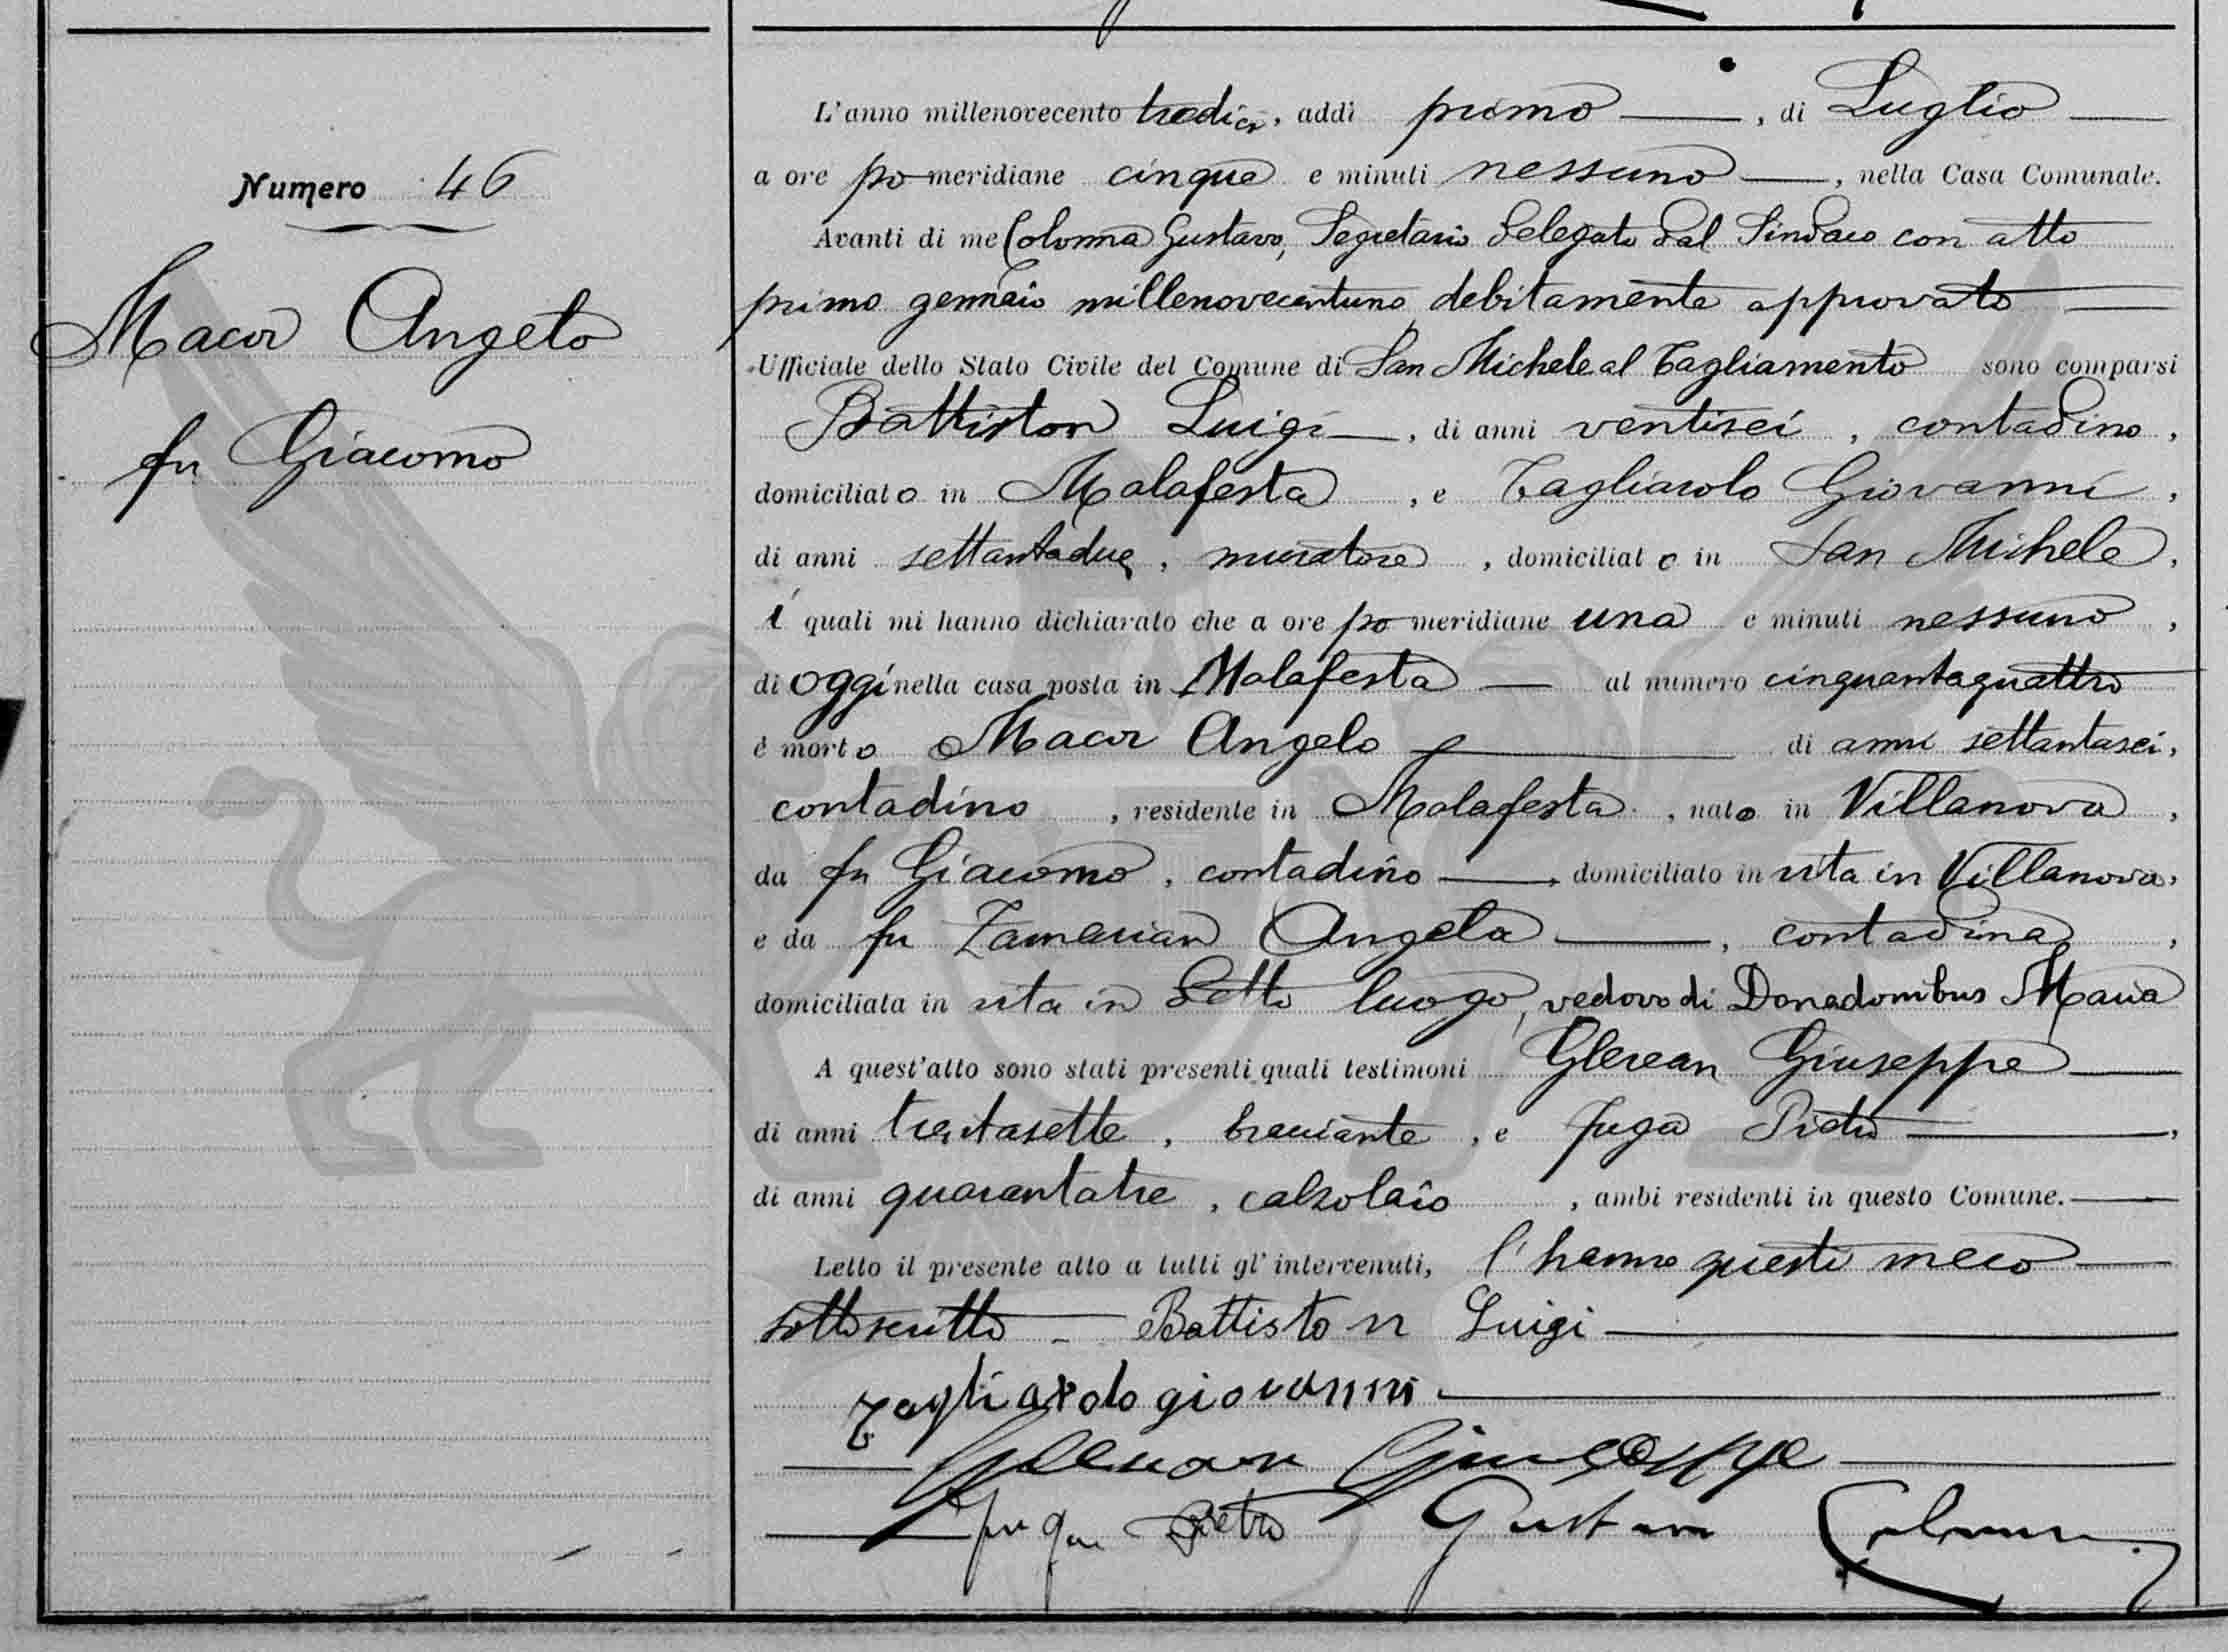 Numero 46
Macor Angelo
fu Giacomo
L'anno millenovecento tredici, addì primo, di Luglio
a ore pomeridiane cinque e minuti nessuno, nella Casa Comunale.
Avanti di me Colonna Gustavo, Segretario delegato dal Sindaco con atto
primo gennaio millenovecentuno debitamente approvato
Ufficiale dello Stato Civile del Comune di San Michele al Tagliamento sono comparsi
Battiston Luigi, di anni ventisei, contadino,
domiciliato in Malafesta, e Tagliarolo Giovanni,
di anni settantadue, muratore, domiciliato in San Michele,
i quali mi hanno dichiarato che a ore pomeridiane una e minuti nessuno,
di oggi nella casa posta in Malafesta al numero cinquantaquattro
è morto Macor Angelo di anni settantasei,
contadino, residente in Malafesta, nato in Villanova,
da fu Giacomo, contadino, domiciliato in vita in Villanova,
e da fu Zamarian Angela, contadina,
domiciliata in vita in detto luogo, vedovo di Donadonibus Maria
A quest'atto sono stati presenti quali testimoni Glerean Giuseppe
di anni trentasette, bracciante, e Fuga Pietro,
di anni quarantatre, calzolaio, ambi residenti in questo Comune.
Letto il presente atto a tutti gl'intervenuti, l'hanno questi meco
sottoscritto - Battiston Luigi
Tagliarolo giovanni
Glerean Giuseppe
Fuga Pietro Gustavo Colonna